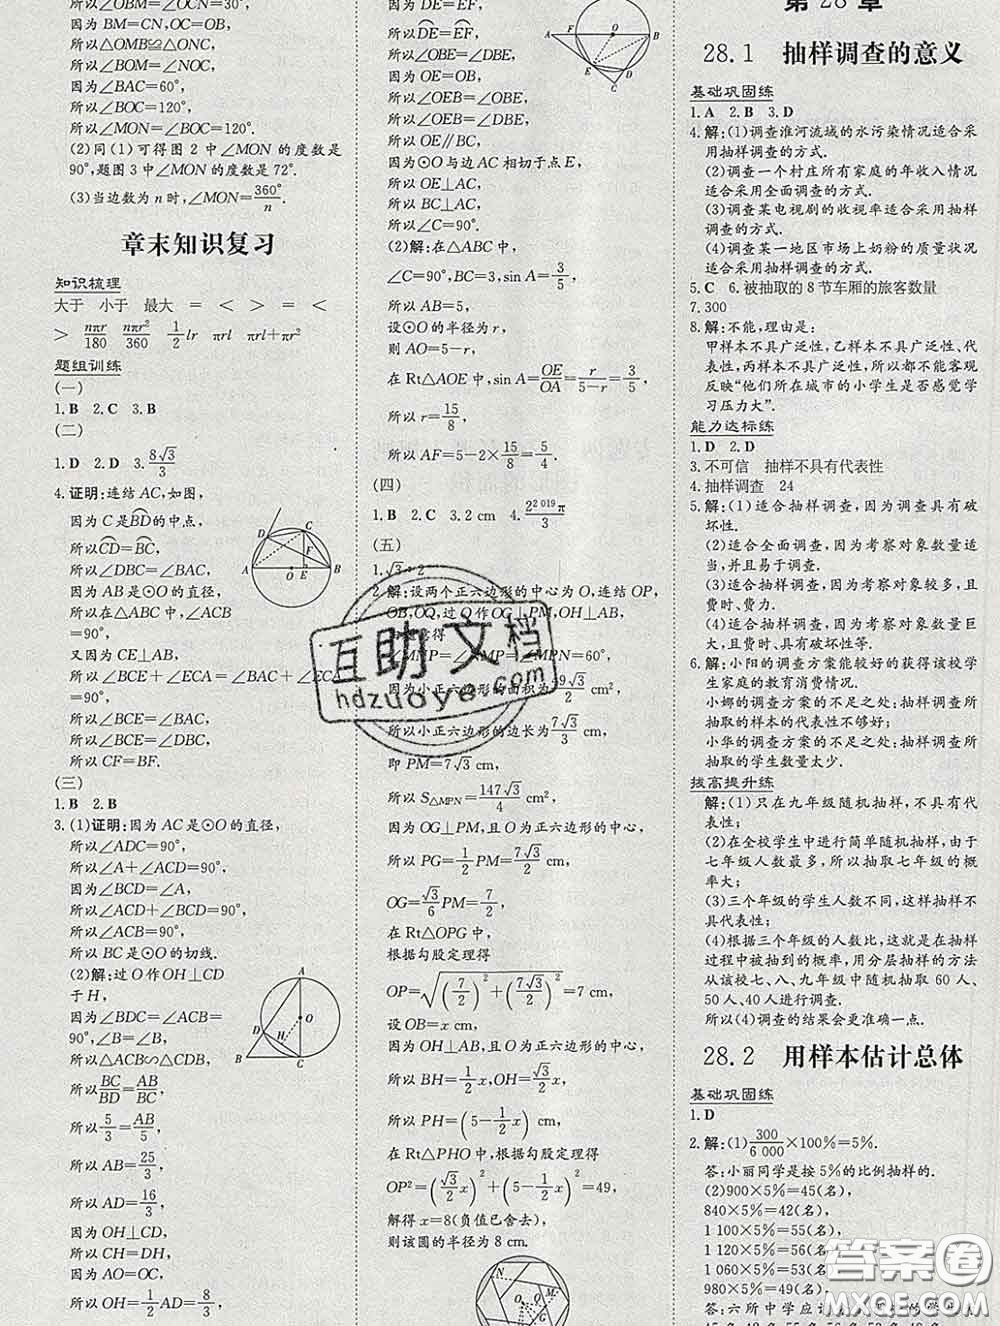 所以∠OBM=∠OCN=30°,
因为 BM=CN,OC=OB,
所以△OMB≌△ONC,
所以∠BOM=∠NOC,
因为∠BAC=60°,
所以∠BOC=120°,
所以∠MON=∠BOC=120°.
(2)同(1)可得图2中∠MON的度数是
90°,题图3中∠MON的度数是72°.
(3)当边数为n时,∠MON=360°/n.
章末知识复习
知识梳理
大于 小于 最大 = < > = <
> nπr/180 nπr²/360 1/2lr πrl πrl+πr²
题组训练
(一)
1.B 2.C 3.B
(二)
1.D 2.D 3.8√3/3
4.证明:连结AC,如图,
因为C是BD的中点,
所以CD=BC,
所以∠DBC=∠BAC,
因为AB是⊙O的直径,
所以在△ABC中,∠ACB
=90°,
又因为CE⊥AB,
所以∠BCE+∠ECA=∠BAC+∠ECA=
90°,
所以∠BCE=∠BAC,
所以∠BCE=∠DBC,
所以CF=BF.
(三)
1.B 2.B
3.(1)证明:因为AC是⊙O的直径,
所以∠ADC=90°,
所以∠A+∠ACD=90°,
因为∠BCD=∠A,
所以∠ACD+∠BCD=90°,
所以∠ACB=90°,
所以BC是⊙O的切线.
(2)解:过O作OH⊥CD
于H,
因为∠BDC=∠ACB=
90°,∠B=∠B,
所以△ACB∽△CDB,
所以BC/BD=AB/BC,
所以5/3=AB/5,
所以AB=25/3,
所以AD=16/3,
因为OH⊥CD,
所以CH=DH,
因为AO=OC,
所以OH=1/2AD=8/3,
因为DE=EF,
所以DE=EF,
所以∠OBE=∠DBE,
因为OE=OB,
所以∠OEB=∠OBE,
所以∠OEB=∠DBE,
所以OE∥BC,
因为⊙O与边AC相切于点E,
所以OE⊥AC,
所以BC⊥AC,
所以∠C=90°.
(2)解:在△ABC中,
∠C=90°,BC=3,sin A=3/5,
所以AB=5,
设⊙O的半径为r,
则AO=5-r,
在Rt△AOE中,sin A=OE/OA=r/(5-r)=3/5,
所以r=15/8,
所以AF=5-2×15/8=5/4.
(四)
1.B 2.C 3.2 cm 4.2^(2 019)π/3
(五)
2.解:设两个正六边形的中心为O,连结OP,
OB,OQ,过O作OG⊥PM,OH⊥AB,
所以小正六边形的边长为7√3/3 cm,
即PM=7√3 cm,
所以S△MPN=147√3/4 cm²,
因为OG⊥PM,且O为正六边形的中心,
所以PG=1/2PM=7√3/2 cm,
OG=√3/6PM=7/2,
在Rt△OPG中,
根据勾股定理得
OP=√((7/2)²+(7√3/2)²)=7 cm,
设OB=x cm,
因为OH⊥AB,且O为正六边形的中心,
所以BH=1/2x,OH=√3/2x,
所以PH=(5-1/2x) cm,
在Rt△PHO中,根据勾股定理得
OP²=(√3/2x)²+(5-1/2x)²=49,
解得x=8(负值已舍去),
则该圆的半径为8 cm.
第28章
28.1 抽样调查的意义
基础巩固练
1.A 2.B 3.D
4.解:(1)调查淮河流域的水污染情况适合采
用抽样调查的方式.
(2)调查一个村庄所有家庭的年收入情况
适合采用全面调查的方式.
(3)调查某电视剧的收视率适合采用抽样
调查的方式.
(4)调查某一地区市场上奶粉的质量状况
适合采用抽样调查的方式.
5.C 6.被抽取的8节车厢的旅客数量
7.300
8.解:不能,理由是:
甲样本不具广泛性,乙样本不具广泛性、代
表性,丙样本不具广泛性,所以都不能客观
反映“他们所在城市的小学生是否感觉学
习压力大”.
能力达标练
1.D 2.D
3.不可信 抽样不具有代表性
4.抽样调查 24
5.解:(1)适合抽样调查,因为调查具有破
坏性.
(2)适合全面调查,因为考察对象数量适
当,并且易于调查.
(3)适合抽样调查,因为考察对象较多,且
费时、费力.
(4)适合抽样调查,因为考察对象数量大,
且费时,具有破坏性等.
6.解:小阳的调查方案能较好的获得该校学
生家庭的教育消费情况.
小娜的调查方案的不足之处:抽样调查所
抽取的样本的代表性不够好;
小华的调查方案的不足之处:抽样调查所
抽取的学生数量太少.
拔高提升练
解:(1)只在九年级随机抽样,不具有代
表性;
(2)在全校学生中进行简单随机抽样,由于
七年级人数最多,所以抽取七年级的概
率大;
(3)三个年级的学生人数不同,这样抽样不
具代表性;
(4)根据三个年级的人数比,这就是在抽样
过程中被抽到的概率,用分层抽样的方法
从该校七、八、九年级中随机抽取60人、
50人、40人进行调查.
所以(4)调查的结果会更准确一点.
28.2 用样本估计总体
基础巩固练
1.D
2.解:(1)300/6 000×100%=5%.
答:小丽同学是按5%的比例抽样的.
(2)900×5%=45(名),
840×5%=42(名),
1 100×5%=55(名),
1 120×5%=56(名),
1 060×5%=53(名),
980×5%=49(名),
互助文档
hdzuoye.com
答案圈
MXQE.COM